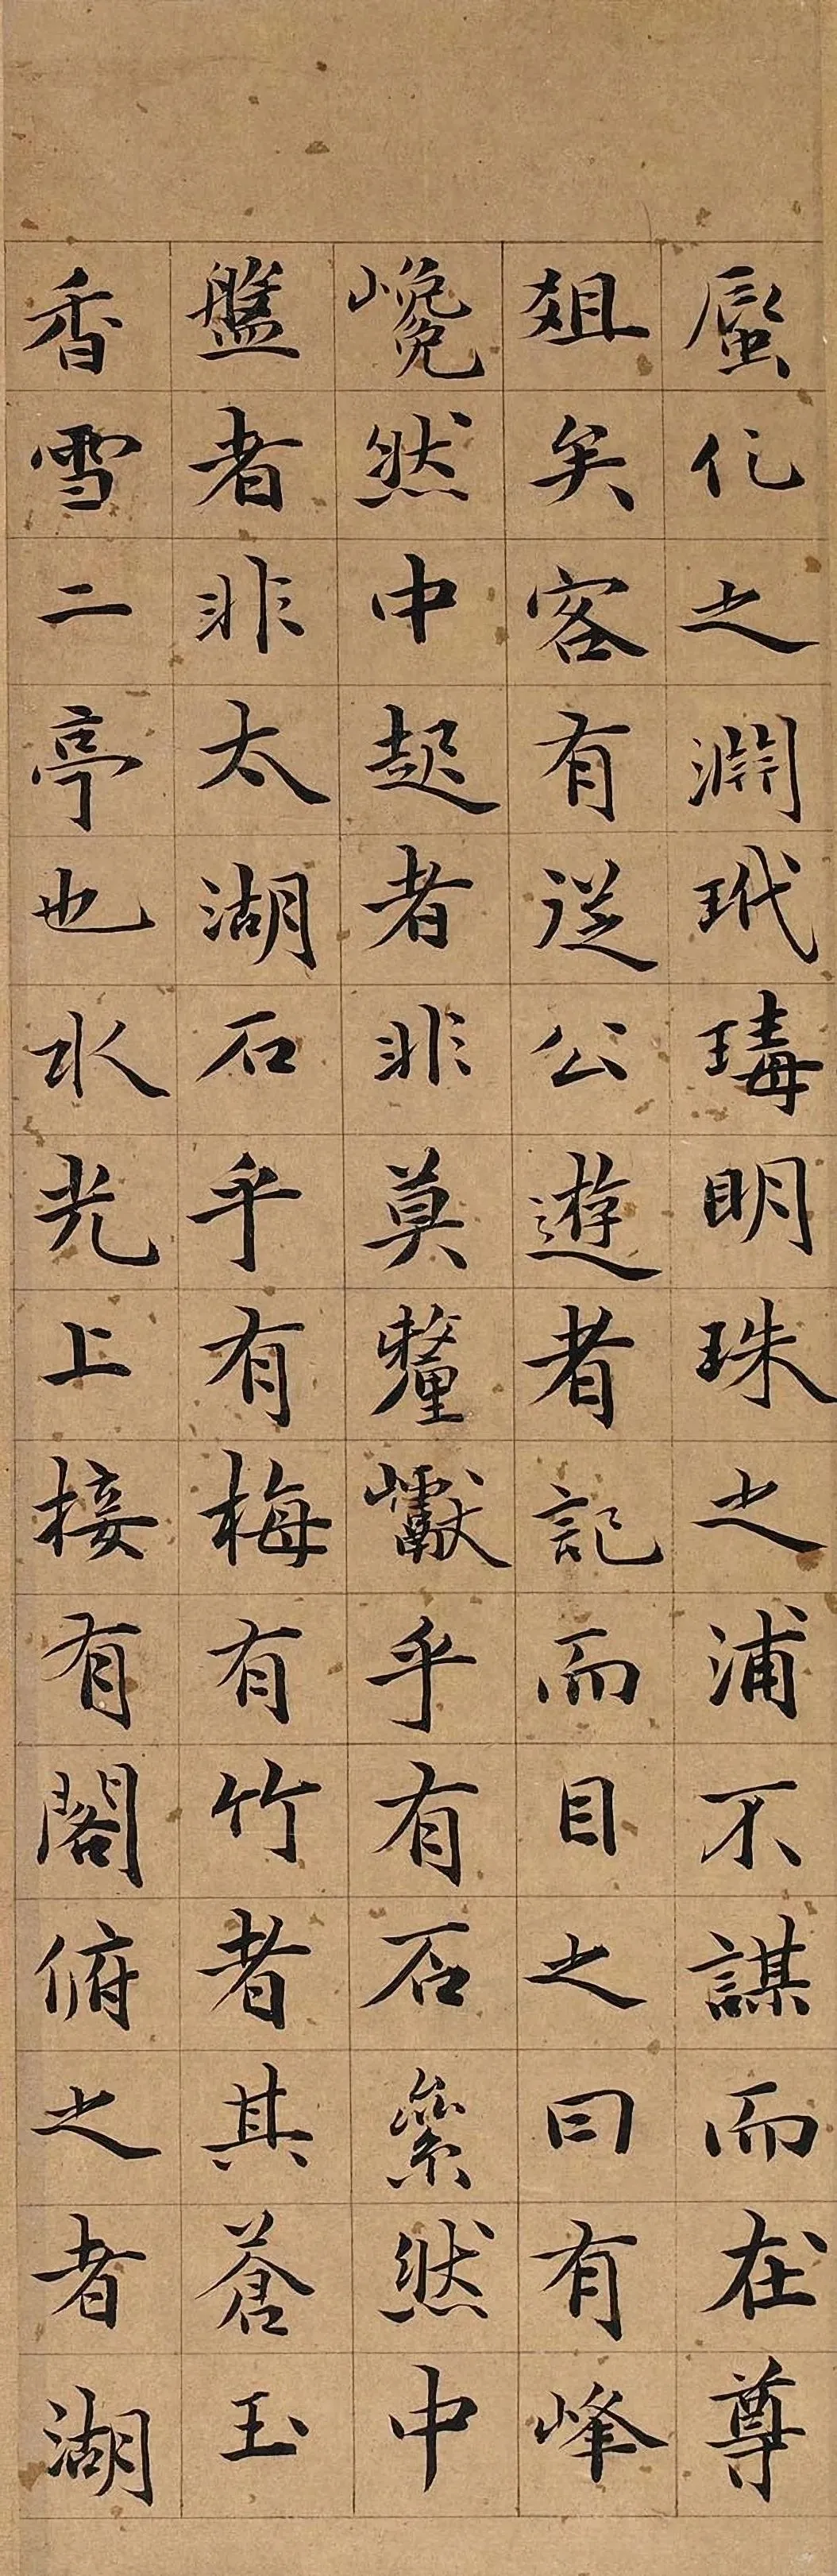 蜃化之淵玳瑇明珠之浦不謀而在尊
爼矣客有從公遊者記而目之曰有峰
巉然中起者非莫釐巘乎有石絫然中
盤者非太湖石乎有梅有竹者其蒼玉
香雪二亭也水光上接有閣俯之者湖